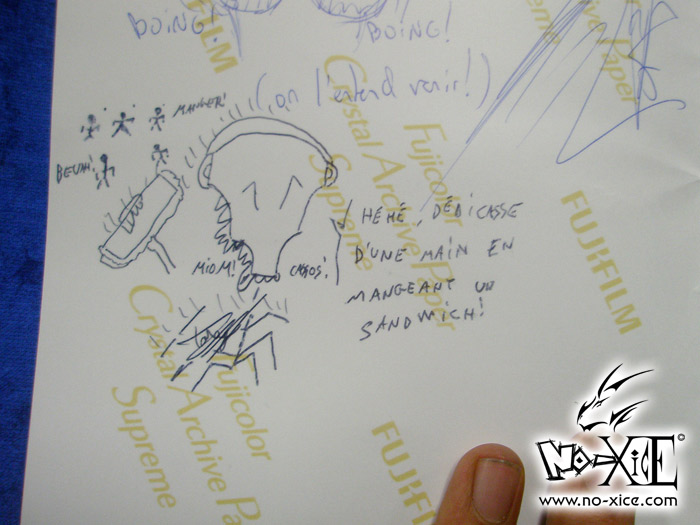 BOING! BOING!
(on l'entend venir!)
MANGER!
BEUAH!
HÉHÉ, DÉDICASSE
D'UNE MAIN EN
MANGEANT UN
SANDWICH!
MIOM!
FUJIFILM
Fujicolor
Crystal Archive Paper
Supreme
FUJIFILM
Fujicolor
Crystal Archive Paper
Supreme
FUJIFILM
NO-XICE©
www.no-xice.com